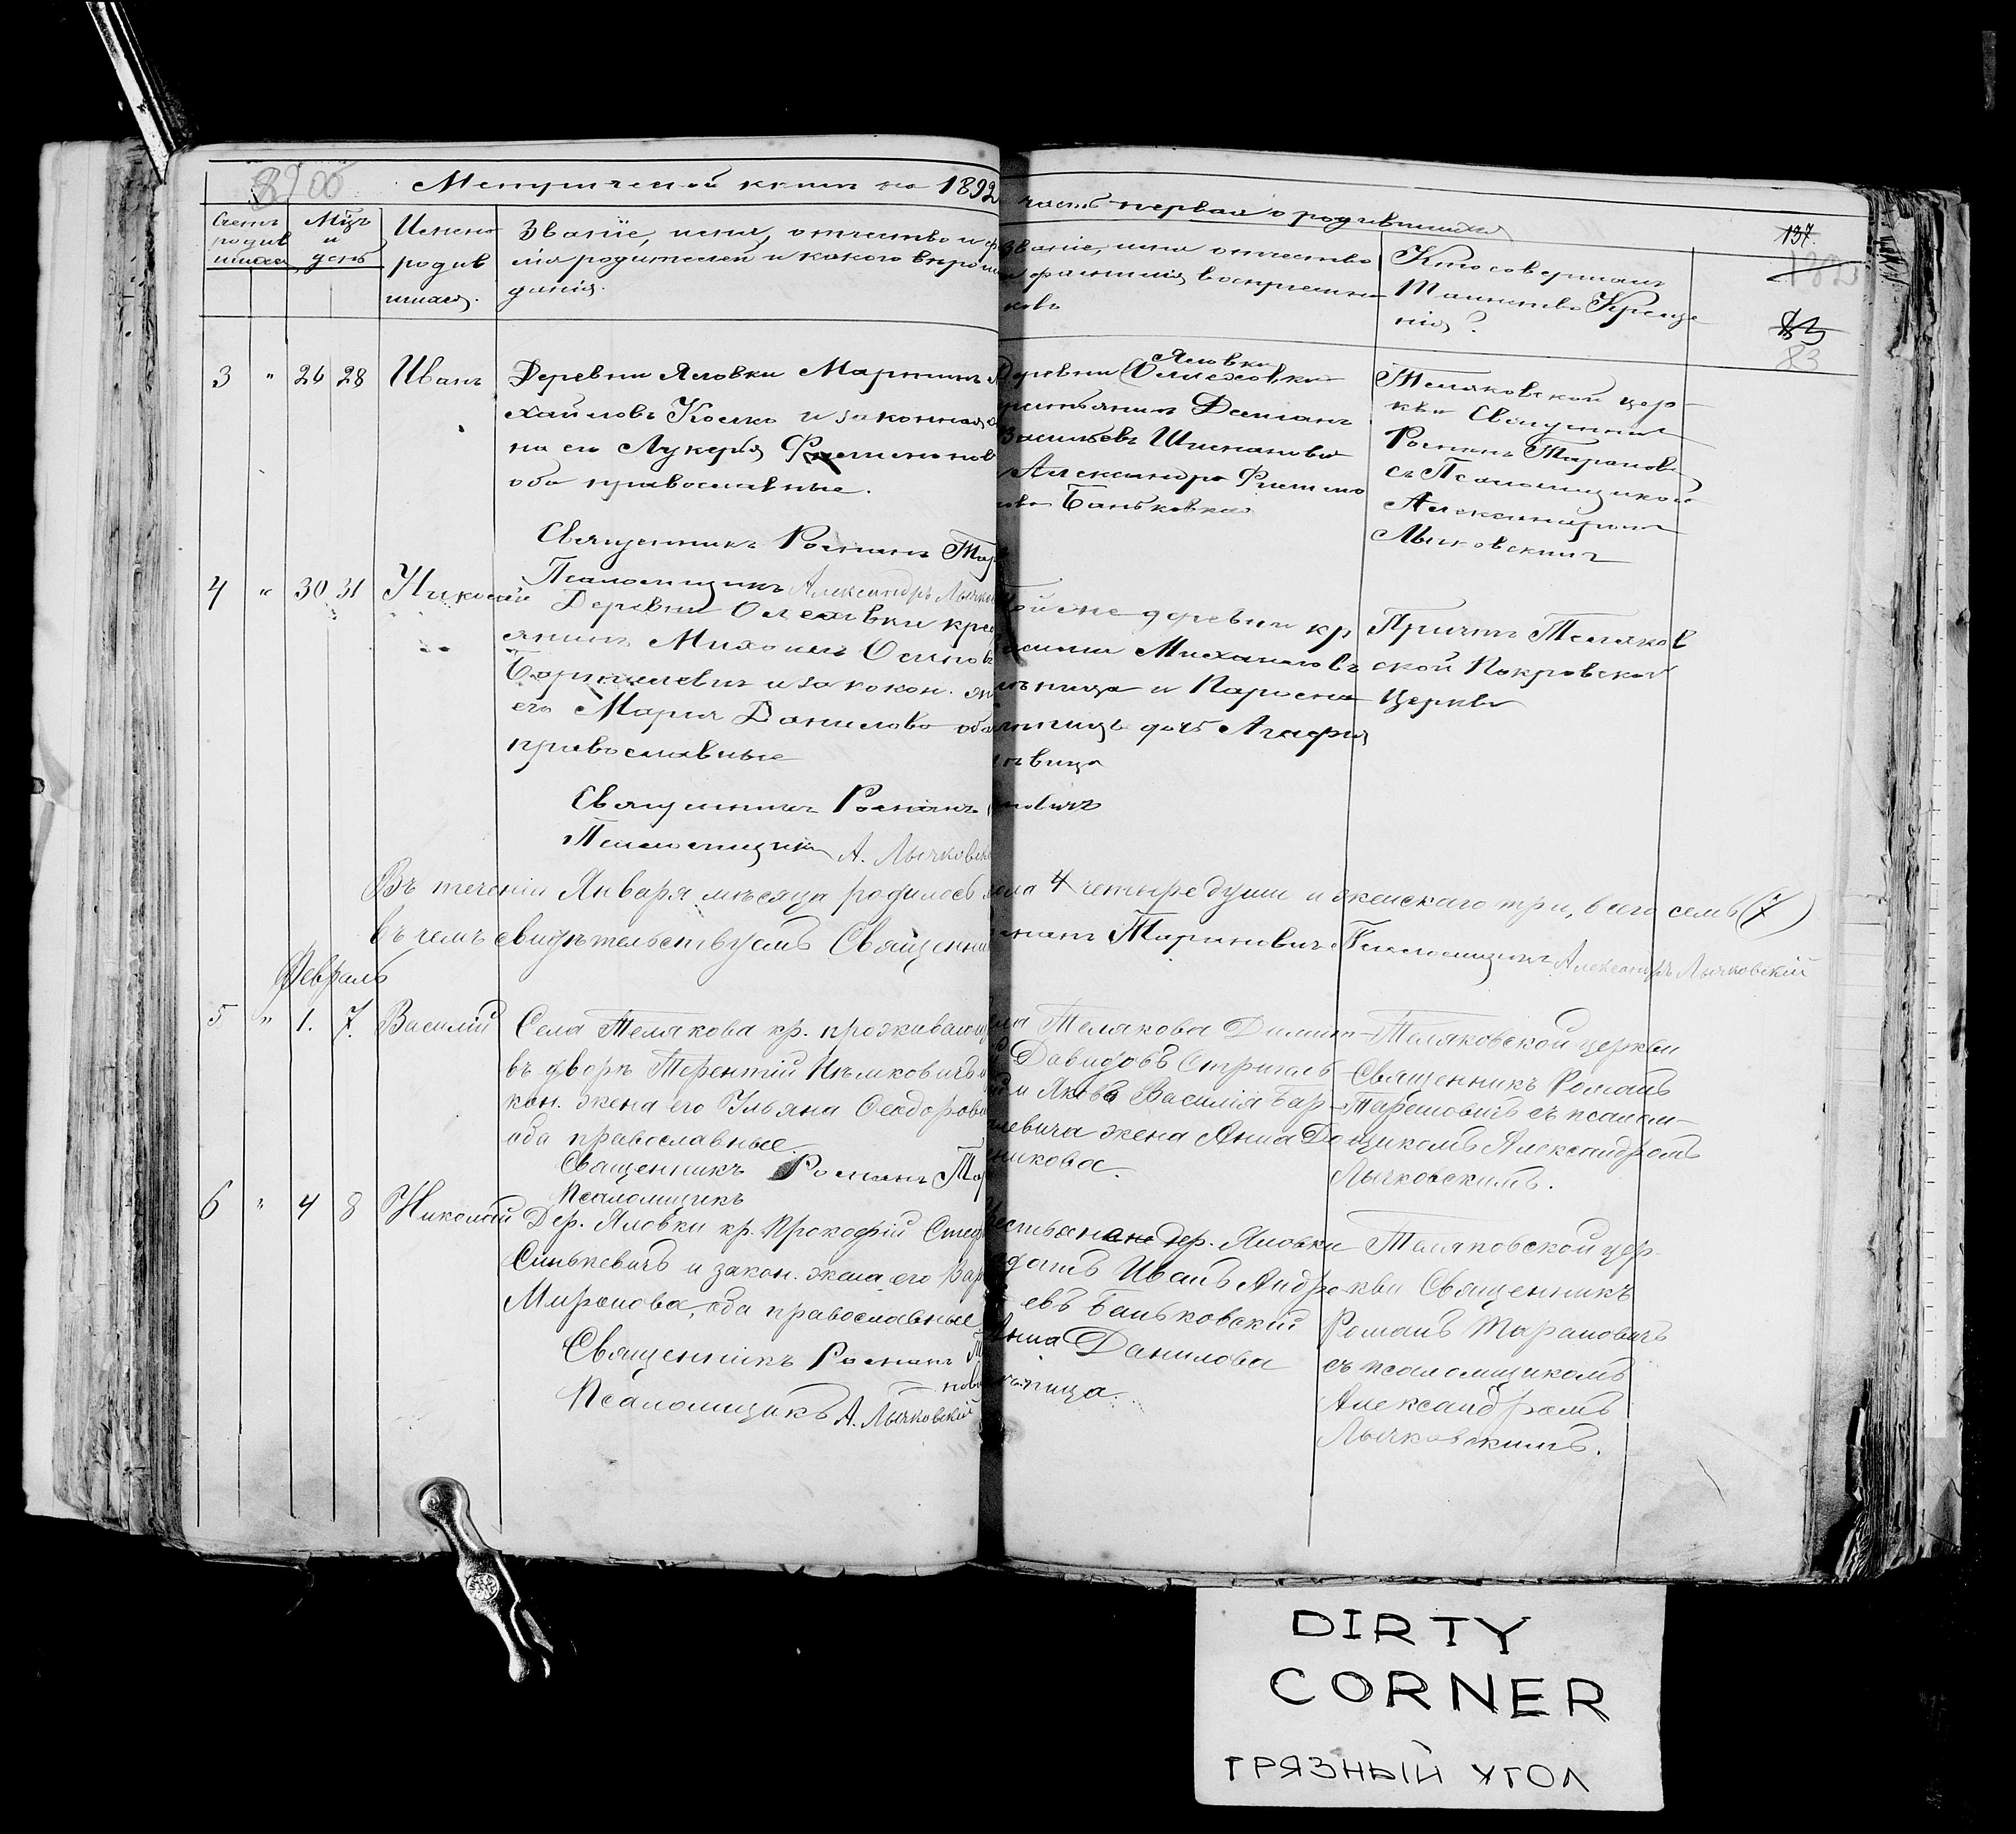 Метрической книги на 1892
часть первая о родившихся
137.
83
Счетъ родив шихся
Мцъ и день
Имена родив шихся.
Званіе, имя, отчество и
родителей и какого вѣроис
данія.
Званіе, имя отчество
и фамилія воспріемни
ковъ
Кто совершалъ
Таинство Креще
нія?
3 " 26 28 Иванъ
Деревни Яловки Мартинъ
хайловъ Коско и законная
на его Лукерія
оба православные.
Священникъ Романъ Тар
Псаломщикъ Александръ Лычков
Яловки
Деревни
Даміанъ
Васильевъ
Александра
Баньковка
Теляковской цер
кви Священник
Романъ Таранови
съ Псаломщикомъ
Александромъ
Лычковскимъ
4 " 30 31 Николай
Деревни Олеховки крес
янинъ Михаилъ Осипов
и закон.
его Марія Данилова оба
православные
Священникъ Романъ
Псаломщикъ А. Лычковск
Той же деревни кр
Михаиловъ
и
дочь Агафія
новичъ
Причтъ Теляков
ской Покровской
Церкви
Въ теченіи Января мѣсяца родилось
пола 4 четыре души и женскаго три, всего семь (7)
въ чемъ свидѣтельствуемъ Священни
Романъ Тарановичъ Псаломщикъ Александръ Лычковскій
Февраль
5 " 1. 7. Василій
Села Телякова кр. проживающ
въ дворѣ Терентій
кон. жена его Ульяна Ѳеодорова
оба православные.
Священникъ Романъ Тар
Псаломщикъ
Телякова Димит
Давидовъ Стригель
Якова Василія Бар
шевича жена Анна
никова.
Теляковской церкви
Священникъ Романъ
Тарановичъ съ псалом
щикомъ Александромъ
Лычковскимъ.
6 " 4 8 Николай
Дер. Яловки кр. Прокофій Стеф
Синькевичъ и закон. жена его Вар
Миронова, оба православные
Священникъ Романъ Т
Псаломщикъ А. Лычковскій
дер. Яловки
Иванъ Андре
евъ Баньковскій
Анна Данилова
Теляковской цер
кви Священникъ
Романъ Тарановичъ
съ псаломщикомъ
Александромъ
Лычковскимъ.
DIRTY
CORNER
ГРЯЗНЫЙ УГОЛ